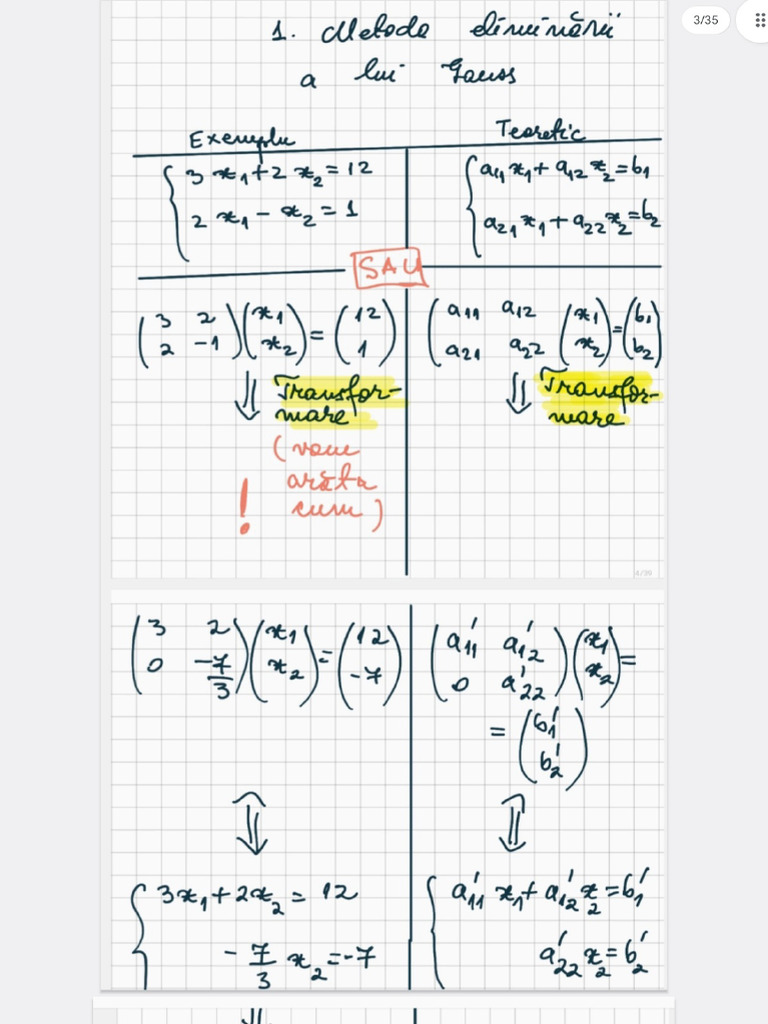 3/35
1. Metoda eliminării
a lui Gauss
Exemplu
Teoretic
3 x₁ + 2 x₂ = 12
2 x₁ - x₂ = 1
a₁₁ x₁ + a₁₂ x₂ = b₁
a₂₁ x₁ + a₂₂ x₂ = b₂
SAU
(3 2; 2 -1)(x₁; x₂) = (12; 1)
(a₁₁ a₁₂; a₂₁ a₂₂)(x₁; x₂) = (b₁; b₂)
⇓ Transfor-
mare
(vom
arăta
cum)
!
⇓ Transfor-
mare
4/39
(3 2; 0 -7/3)(x₁; x₂) = (12; -7)
(a'₁₁ a'₁₂; 0 a'₂₂)(x₁; x₂) =
= (b'₁; b'₂)
⇕
⇕
3x₁ + 2x₂ = 12
- 7/3 x₂ = -7
a'₁₁ x₁ + a'₁₂ x₂ = b'₁
a'₂₂ x₂ = b'₂